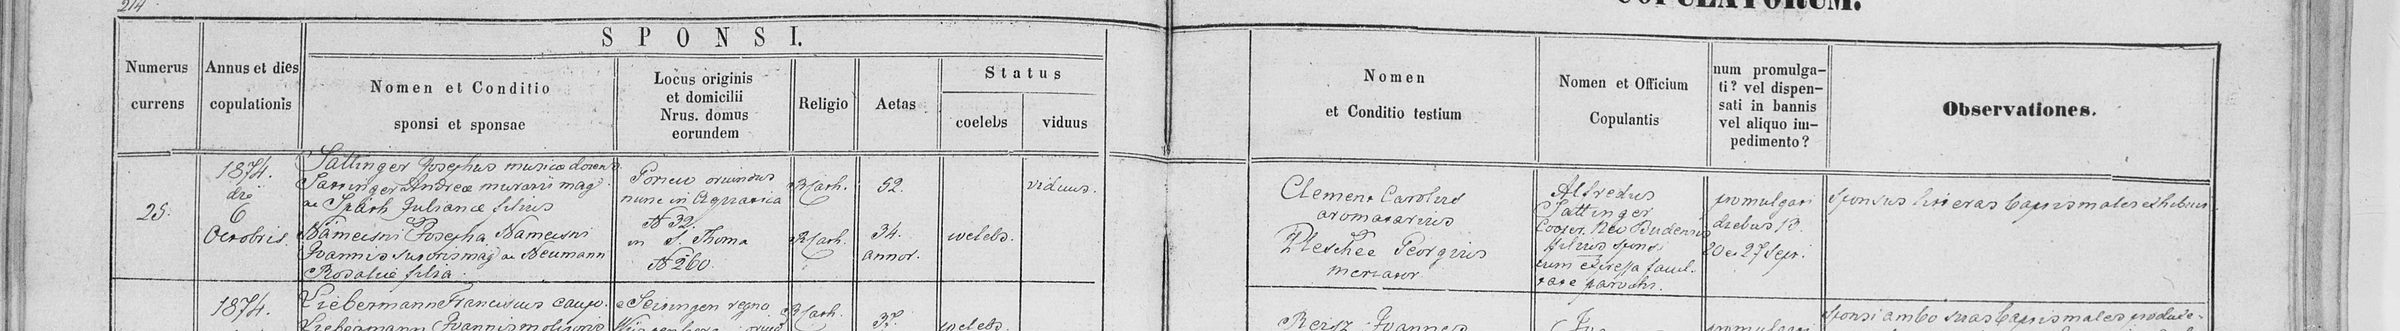 214
COPULATORUM.
SPONSI.
Numerus
currens
Annus et dies
copulationis
Nomen et Conditio
sponsi et sponsae
Locus originis
et domicilii
Nrus. domus
eorundem
Religio
Aetas
Status
coelebs
viduus
Nomen
et Conditio testium
Nomen et Officium
Copulantis
num promulga-
ti? vel dispen-
sati in bannis
vel aliquo im-
pedimento?
Observationes.
25.
1874.
die
6
Octobris.
Sattinger Josephus musicae docens
Sattinger Andreae murarii mag.
ac Juliannae filius
Nameisni Josepha, Nameisni
Joannis sutoris mag. ac Neumann
Rosaliae filia.
oriundus
nunc in Aquatica
N 32.
in S. Thoma
N 260.
R. Cath.
R. Cath.
52.
34.
annor.
coelebs.
viduus.
Clement Carolus
aromatarius
Pletschee Georgius
mercator
Alfredus
Sattinger
Cooper. Neo Budensis
filius sponsi
cum expressa facul-
tate parochi.
promulgati
diebus 13.
20 et 27 Sept.
Sponsus literas baptismales exhibuit.
1874.
Liebermann Franciscus caupo.
Liebermann Joannis molitoris
regno
oriund
R. Cath.
37.
coelebs.
Joannes
promulgati
Sponsi ambo suas baptismales produxe-